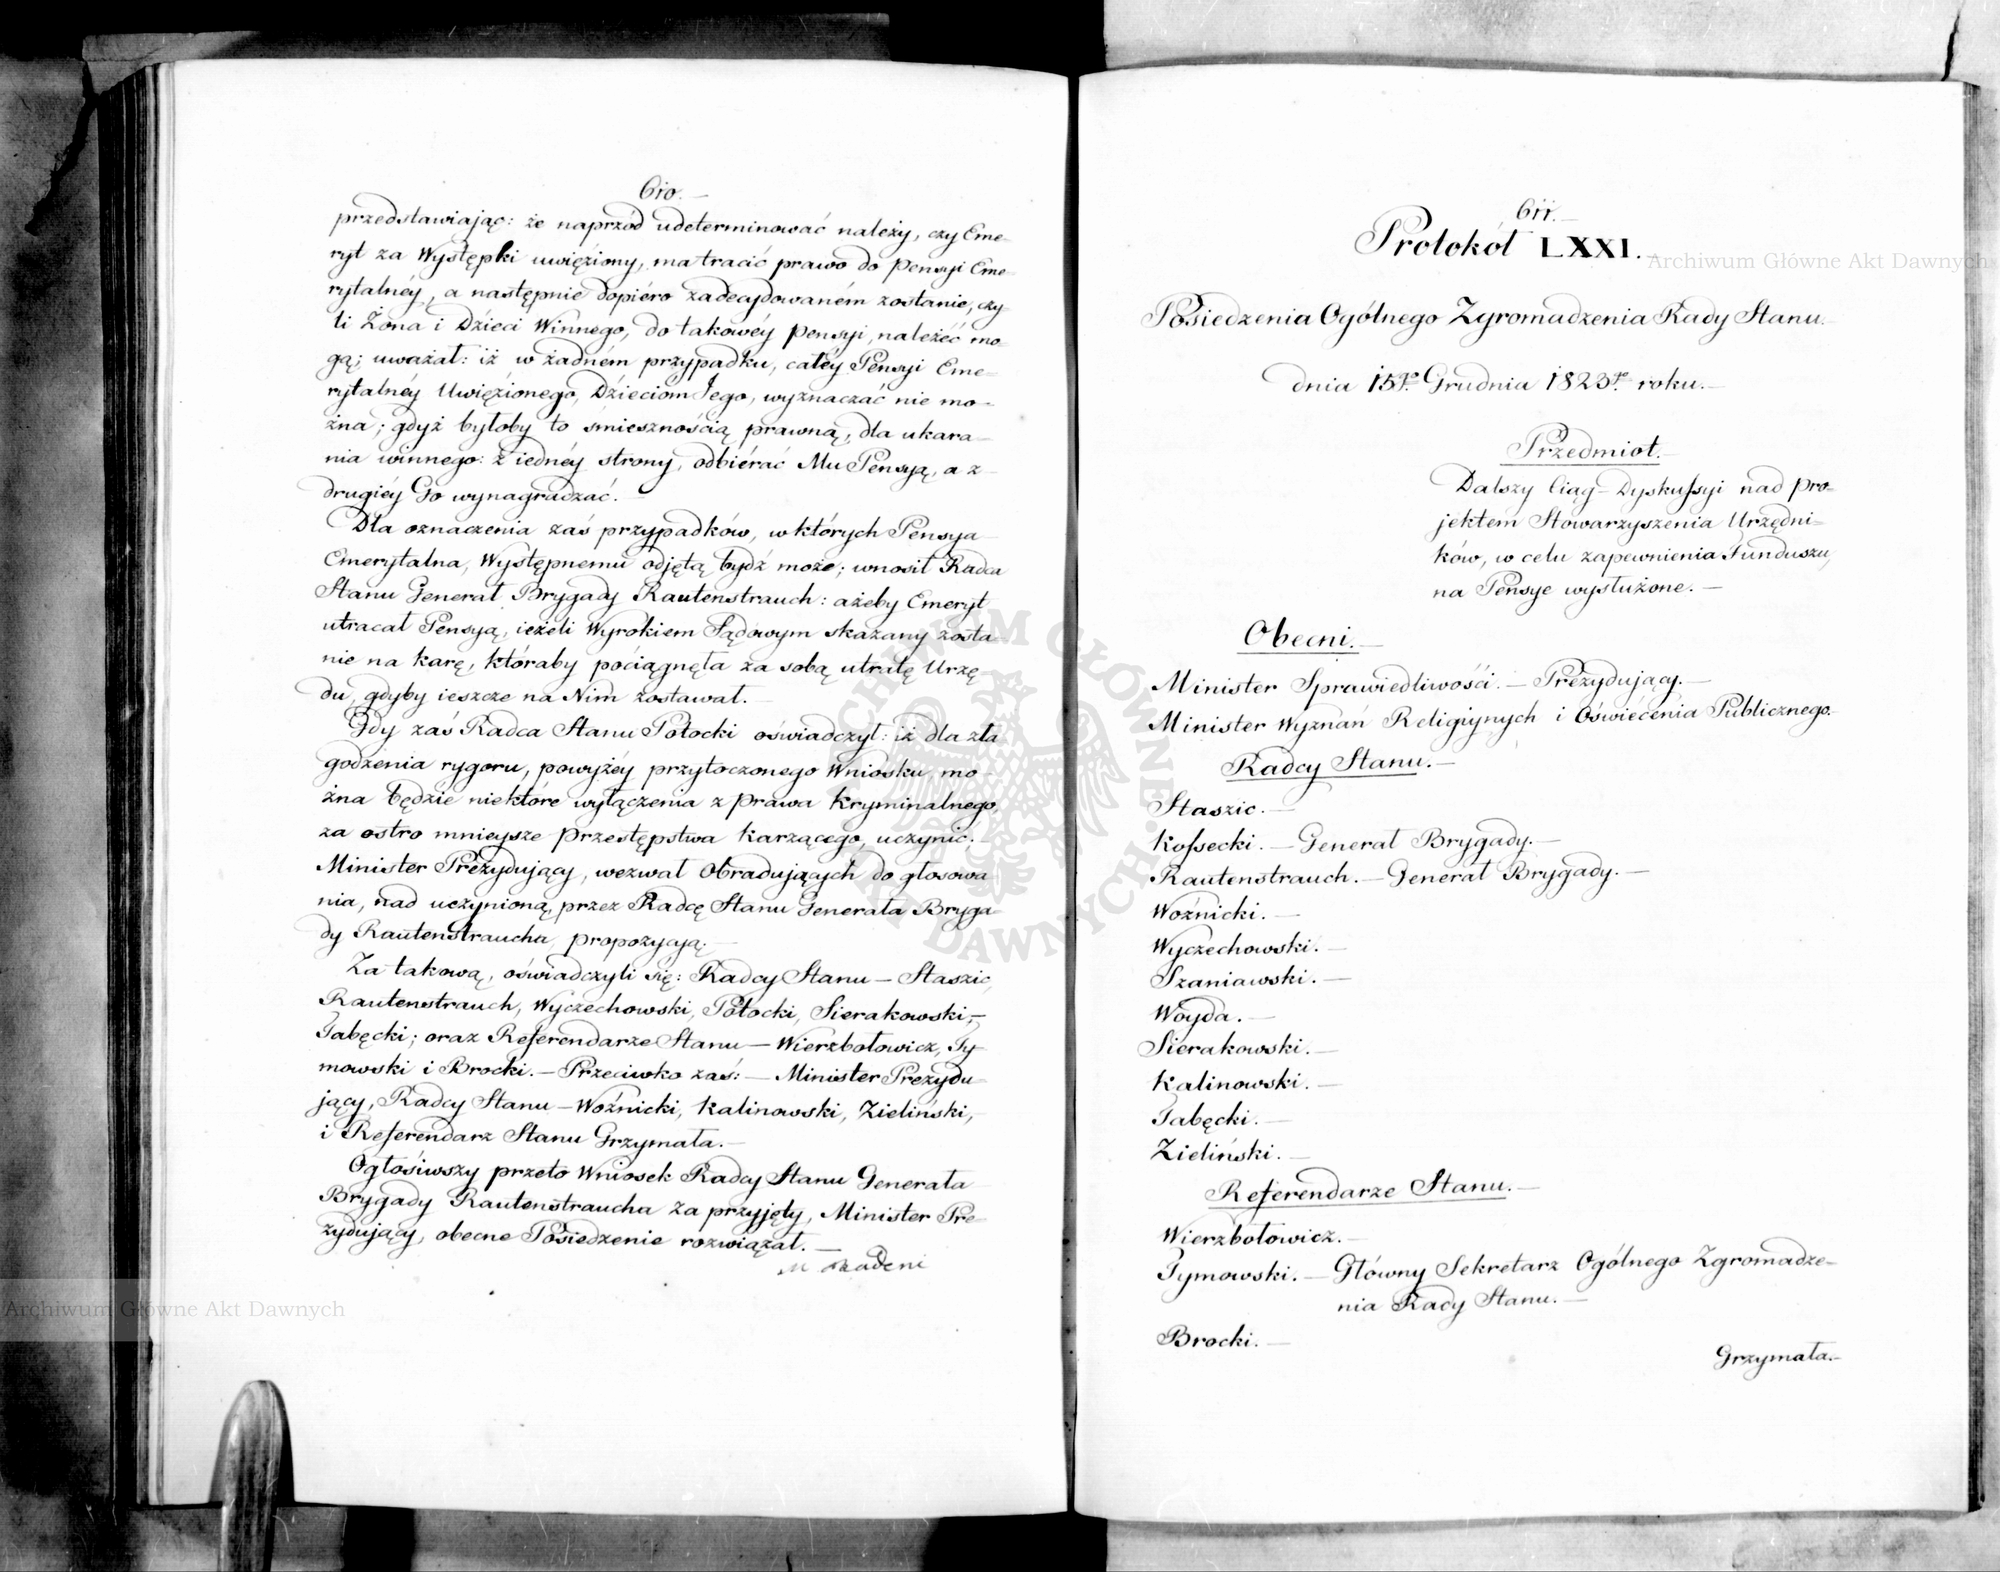 610.—
przedstawiając: że naprzód udeterminować należy, czy Eme-
ryt za Występki uwięziony, ma tracić prawo do Pensyi Eme-
rytalnéy, a następnie dopiéro zadecydowaném zostanie, czy-
li Żona i Dzieci Winnego, do takowéy Pensyi, należéć mo-
gą; uważał: iż w żadném przypadku, całéy Pensyi Eme-
rytalnéy Uwięzionego, Dzieciom Jego, wyznaczać nie mo-
żna; gdyż byłoby to śmiesznością prawną, dla ukara-
nia winnego: z iednéy strony, odbiérać Mu Pensyą, a z
drugiéy Go wynagradzać.—
Dla oznaczenia zaś przypadków, w których Pensya
Emerytalna, Występnemu odjętą bydź może; wnosił Radca
Stanu Generał Brygady Rautenstrauch: ażeby Emeryt
utracał Pensyą, ieżeli Wyrokiem Sądowym skazany zosta-
nie na karę, któraby pociągnęła za sobą utratę Urzę-
du, gdyby ieszcze na Nim zostawał.—
Gdy zaś Radca Stanu Potocki oświadczył: iż dla zła-
godzenia rygoru, powyżéy przytoczonego Wniosku, mo-
żna będzie niektóre wyłączenia z prawa Kryminalnego,
za ostro mnieysze Przestępstwa karzącego, uczynić;—
Minister Prezydujący, wezwał Obradujących do głosowa-
nia, nad uczynioną, przez Radcę Stanu Generała Bryga-
dy Rautenstraucha, propozycją.—
Za takową, oświadczyli się: Radcy Stanu — Staszic,
Rautenstrauch, Wyczechowski, Potocki, Sierakowski,—
Tabęcki; oraz Referendarze Stanu — Wierzbołowicz, Ty-
mowski i Brocki.— Przeciwko zaś: — Minister Prezydu-
jący, Radcy Stanu — Woźnicki, Kalinowski, Zieliński,
i Referendarz Stanu Grzymała.—
Ogłosiwszy przeto Wniosek Radcy Stanu Generała
Brygady Rautenstraucha za przyjęty, Minister Pre-
zydujący, obecne Posiedzenie rozwiązał.—
M Badeni
611.—
Protokół LXXI.
Posiedzenia Ogólnego Zgromadzenia Rady Stanu.—
dnia 15go Grudnia 1823go roku.—
Przedmiot.—
Dalszy Ciąg Dyskussyi nad Pro-
jektem Stowarzyszenia Urzędni-
ków, w celu zapewnienia Funduszu,
na Pensye wysłużone.—
Obecni.—
Minister Sprawiedliwości.— Prezydujący.—
Minister Wyznań Religiynych i Oświecenia Publicznego.—
Radcy Stanu.—
Staszic.—
Kossecki.— Generał Brygady.—
Rautenstrauch.— Generał Brygady.—
Woźnicki.—
Wyczechowski.—
Szaniawski.—
Woyda.—
Sierakowski.—
Kalinowski.—
Tabęcki.—
Zieliński.—
Referendarze Stanu.—
Wierzbołowicz.—
Tymowski.— Główny Sekretarz Ogólnego Zgromadze-
nia Rady Stanu.—
Brocki.—
Grzymała.—
Archiwum Główne Akt Dawnych
Archiwum Główne Akt Dawnych
ARCHIWUM GŁÓWNE AKT DAWNYCH